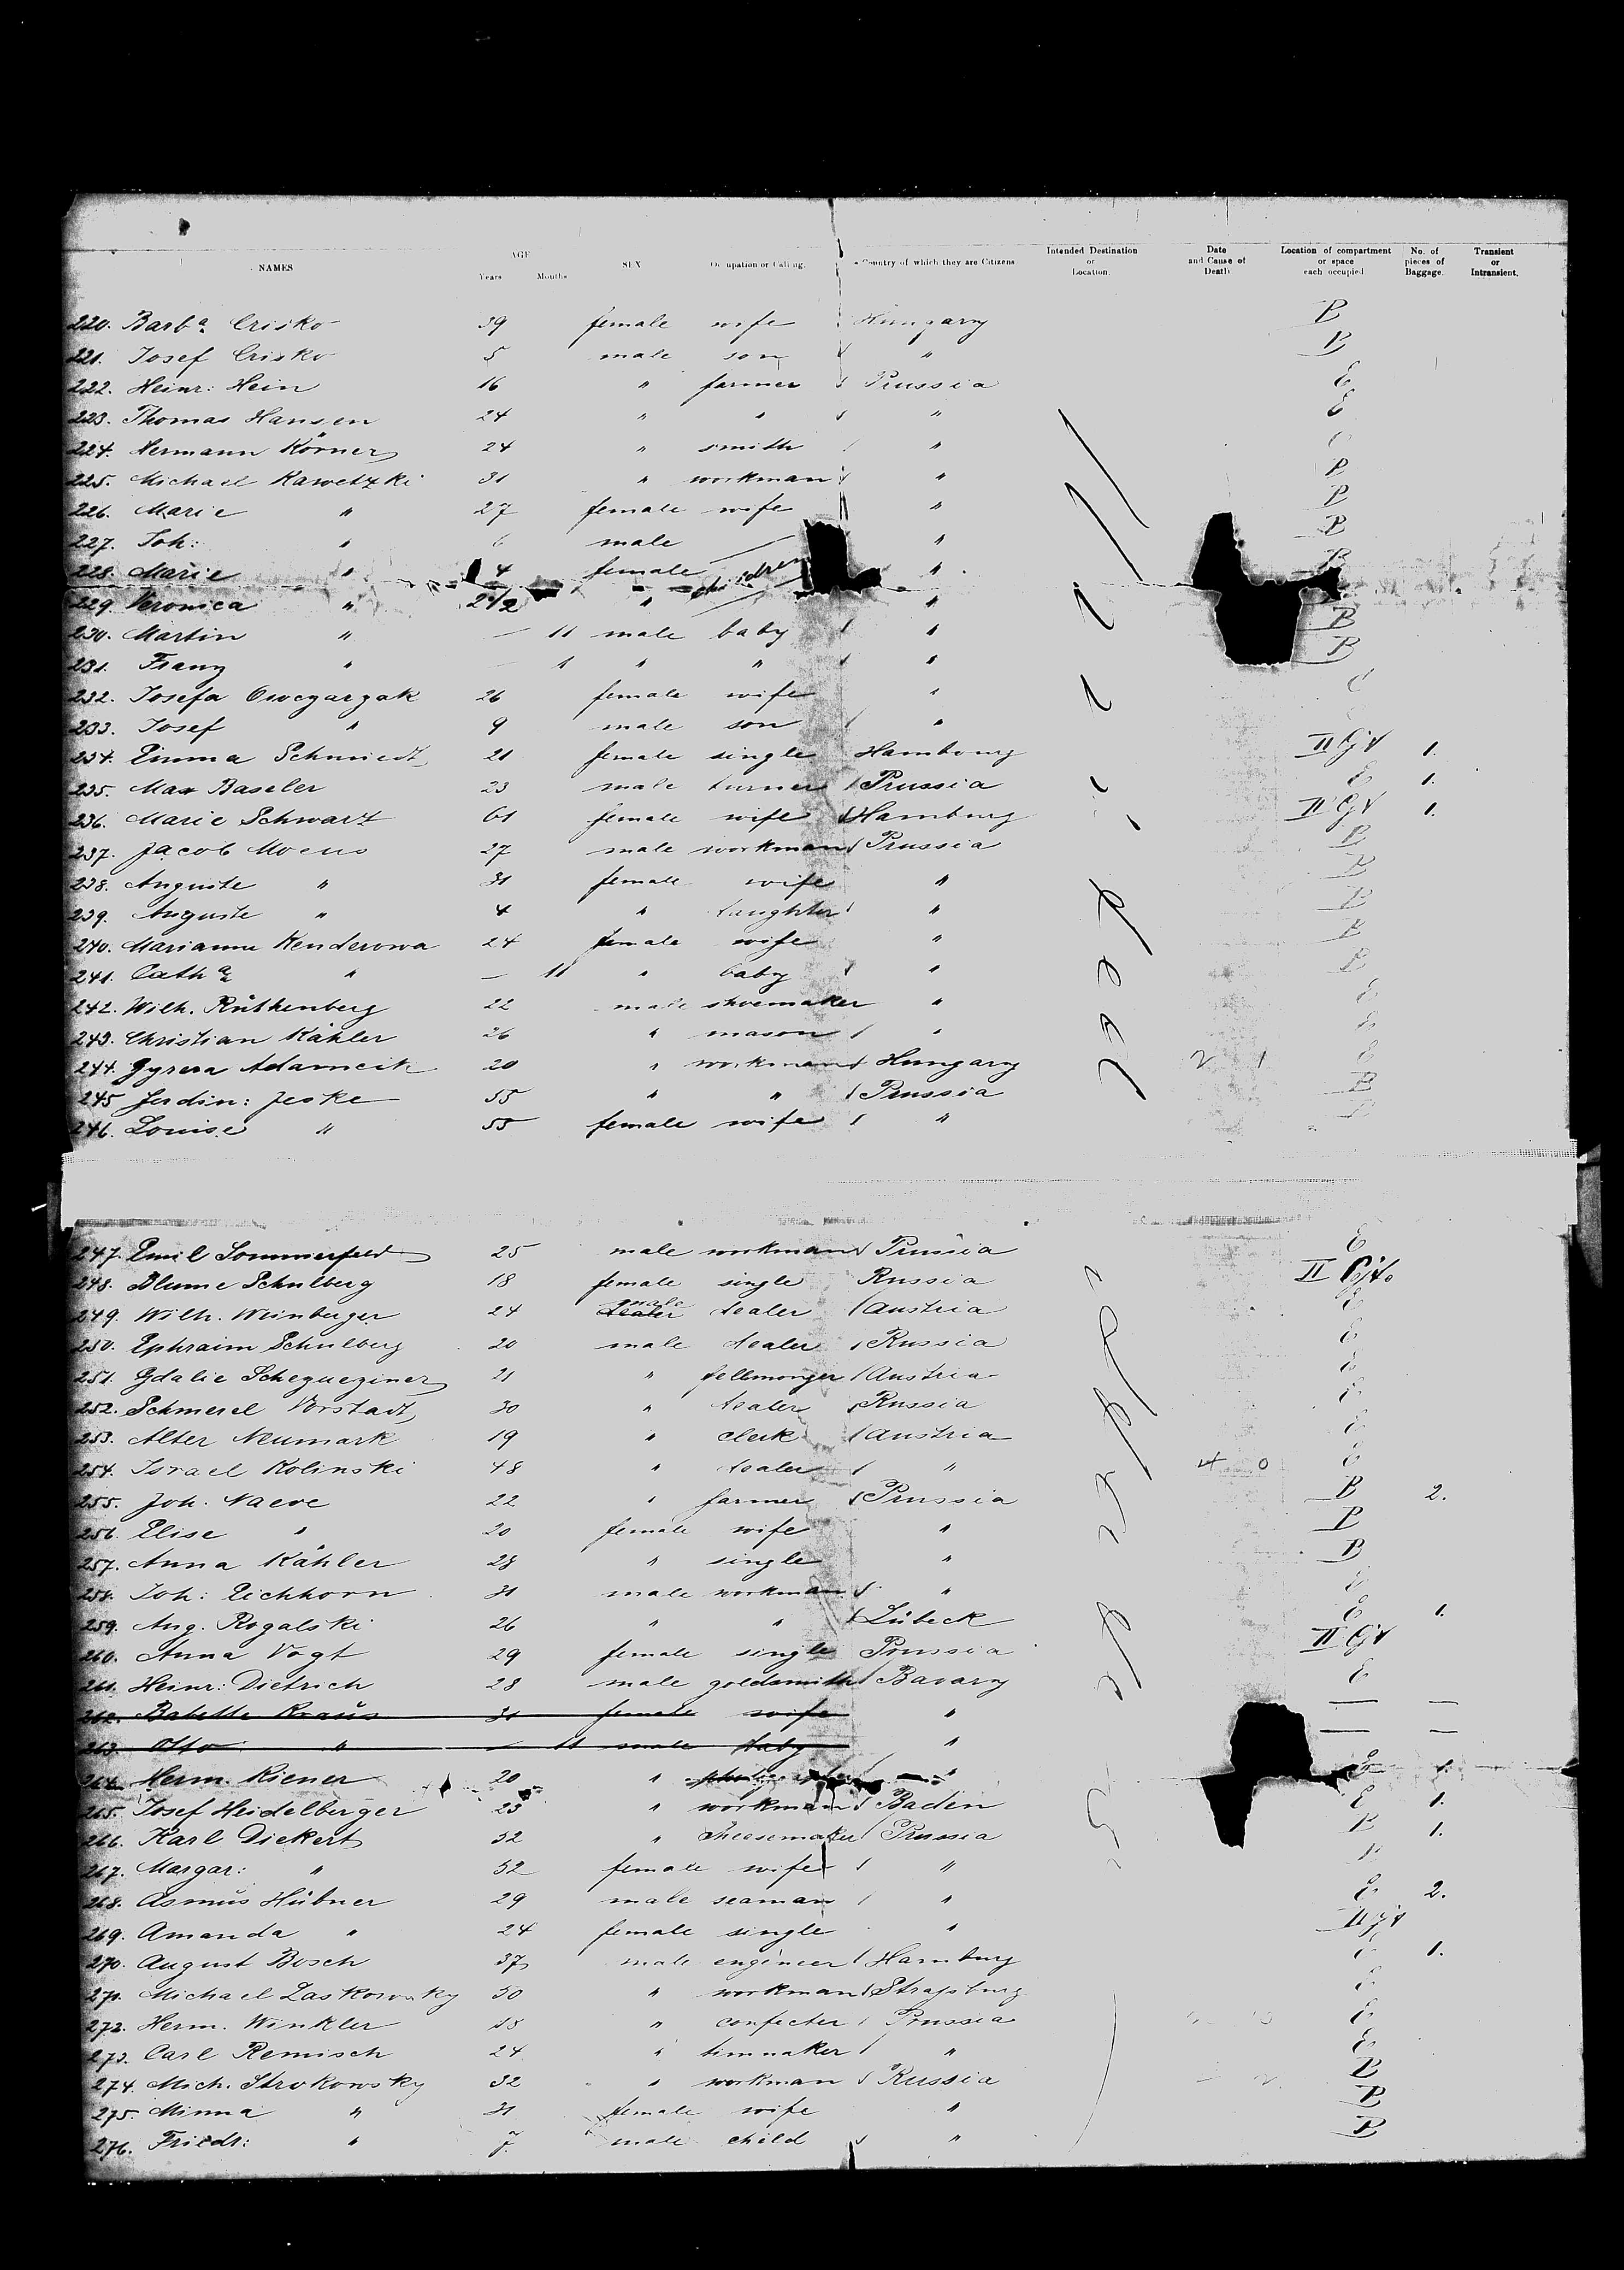 NAMES AGE Years Months SEX Occupation or Calling. Country of which they are Citizens Intended Destination or Location. Date and Cause of Death Location of compartment or space each occupied No. of pieces of Baggage. Transient or Intransient.
220. Barbª Crisko 39 female wife Hungary B
221. Josef Crisko 5 male son " B
222. Heinr: Hein 16 " farmer Prussia E
223. Thomas Hansen 24 " " " E
224. Hermann Körner 24 " smith "
225. Michael Kawetzki 31 " workman " B
226. Marie " 27 female wife " B
227. Joh: " 6 male " B
228. Marie " 4 female children " B
229. Veronica " 2 1/2 " "
230. Martin " — 11 male baby " B
231. Franz " — 1 " " " B
232. Josefa Owczarzak 26 female wife "
233. Josef " 9 male son "
234. Emma Schmiedt 21 female single Hambourg II Cjt 1.
235. Max Baseler 23 male turner Prussia E 1.
236. Marie Schwart 61 female wife Hamburg II Cjt 1.
237. Jacob Moens 27 male workman Prussia B
238. Auguste " 31 female wife " B
239. Auguste " 4 " daughter " B
240. Marianna Kenderowa 24 female wife " B
241. Cathª " — 11 " baby " B
242. Wilh. Rüthenberg 22 male shoemaker " E
243. Christian Kähler 26 " mason " E
244. Gyrera Adamcik 20 " workman Hungary 2 1 E
245 Ferdin: Jeske 55 " " Prussia B
246. Louise " 55 female wife " B
247. Emil Sommerfeld 25 male workman Prussia E
248. Blume Schulberg 18 female single Russia II
249. Wilh. Weinberger 24 male dealer Austria E
250. Ephraim Schulberg 20 male dealer Russia E
251. Gdalie 21 " fellmonger Austria E
252. Schmerel Vorstadt 30 " dealer Russia E
253. Alter Neumark 19 " clerk Austria E
254. Israel Kolinski 48 " dealer " 4 0 E
255. Joh. Naeve 22 " farmer Prussia B 2.
256. Elise " 20 female wife " B
257. Anna Kähler 28 " single " B
258. Joh: Eichhorn 31 male workman " E
259. Aug. Rogalski 26 " " Lübeck E 1.
260. Anna Vogt 29 female single Prussia II Cjt
261. Heinr: Dietrich 28 male goldsmith Bavary E
262. Babette Kraus 31 female wife " — —
263. Otto " — 11 male baby " — —
264. Herm. Kiener 20 " " E 1.
265. Josef Heidelberger 23 " workman Baden E 1.
266. Karl Diekert 32 " cheesemaker Prussia B 1.
267. Margar: " 32 female wife " B
268. Asmus Hübner 29 male seaman " E 2.
269. Amanda " 24 female single " II Cjt
270. August Bosch 37 male engineer Hamburg E 1.
271. Michael Laskowsky 30 " workman Strassburg E
272. Herm. Winkler " confecter Prussia E
273. Carl Remisch 24 " " E
274. Mich. Strokowsky 32 " workman Russia B
275. Minna " 31 female wife " B
276. Friedr: " 7 male child " B